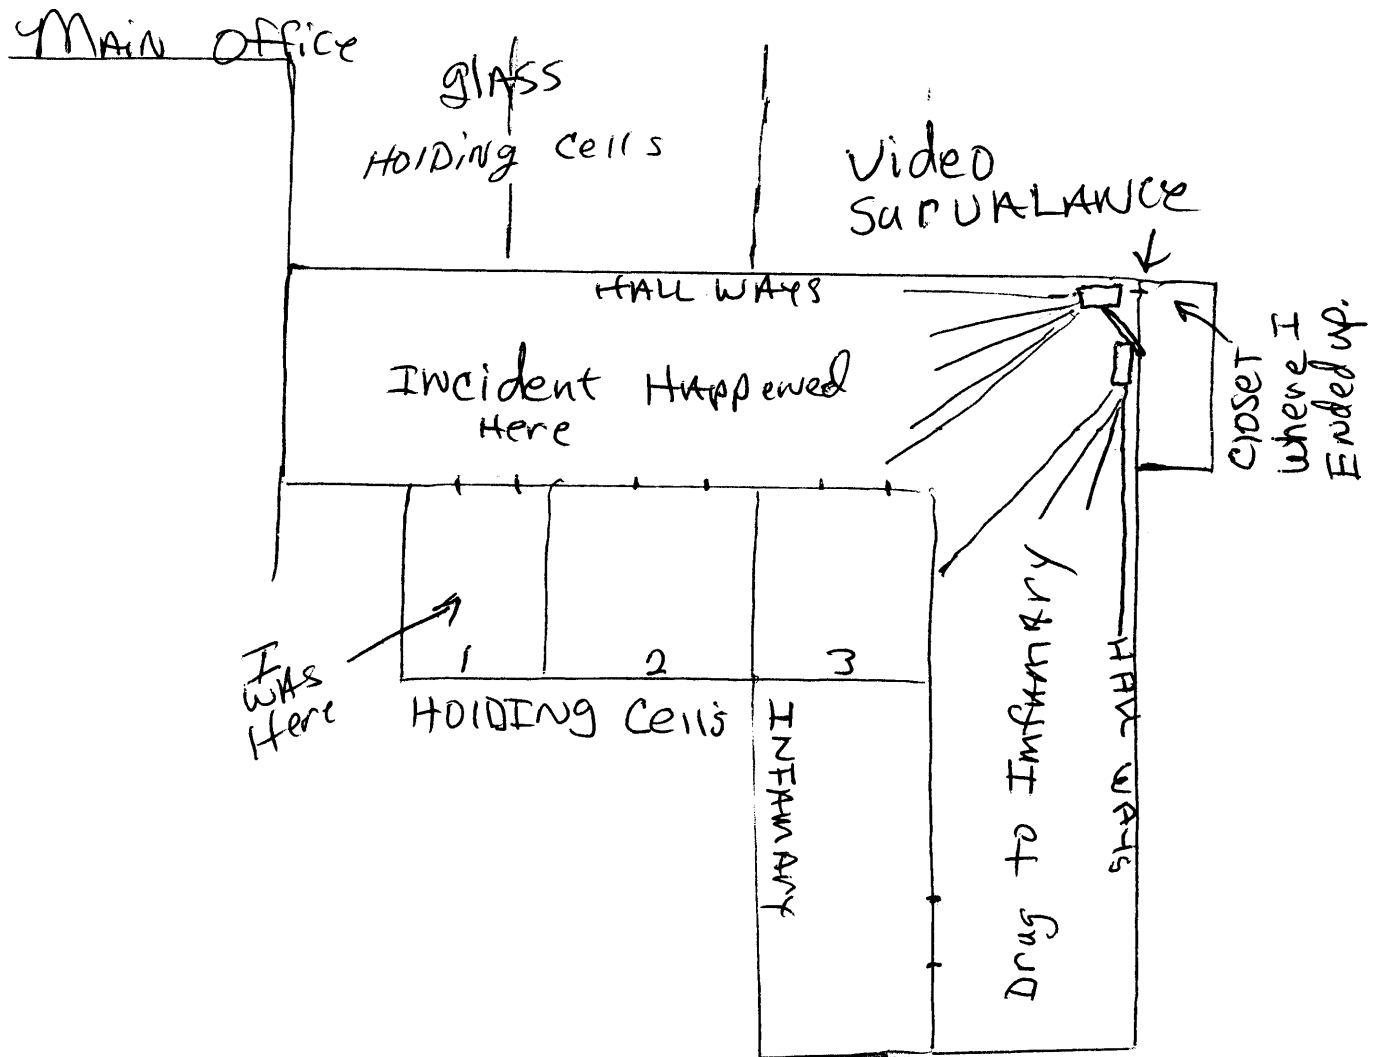 MAIN Office
glASS
HOlDiNg Cells
Video
SurVALANCE
HALL WAYS
INcident Happened
Here
ClOSET
where I
Ended up.
I
WAS
Here
1
2
3
HOlDINg Cells
INFAMARY
Drug to Imfumary
HAll WAYS